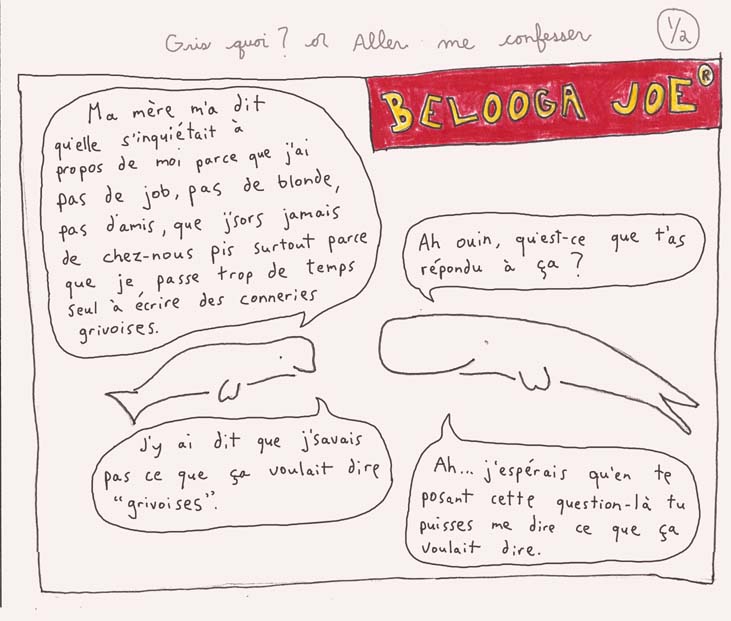 Gris quoi? or Aller me confesser
1/2
BELOOGA JOE®
Ma mère m'a dit
qu'elle s'inquiétait à
propos de moi parce que j'ai
pas de job, pas de blonde,
pas d'amis, que j'sors jamais
de chez-nous pis surtout parce
que je passe trop de temps
seul à écrire des conneries
grivoises.
Ah ouin, qu'est-ce que t'as
répondu à ça?
J'y ai dit que j'savais
pas ce que ça voulait dire
"grivoises".
Ah... j'espérais qu'en te
posant cette question-là tu
puisses me dire ce que ça
voulait dire.